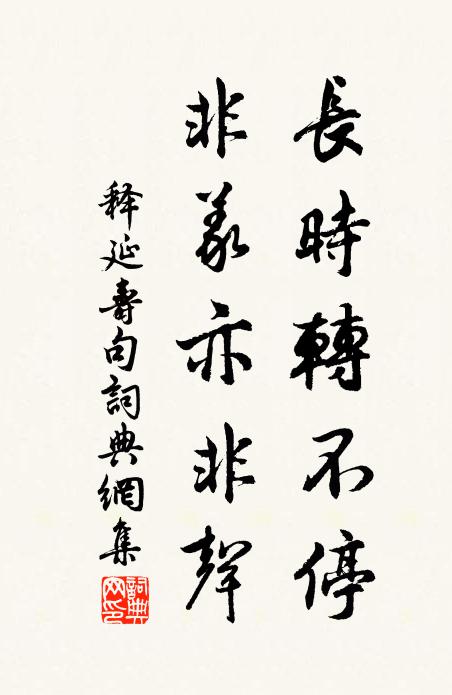 長時轉不停
非義亦非聲
释延壽句詞典網集
詞典
网印